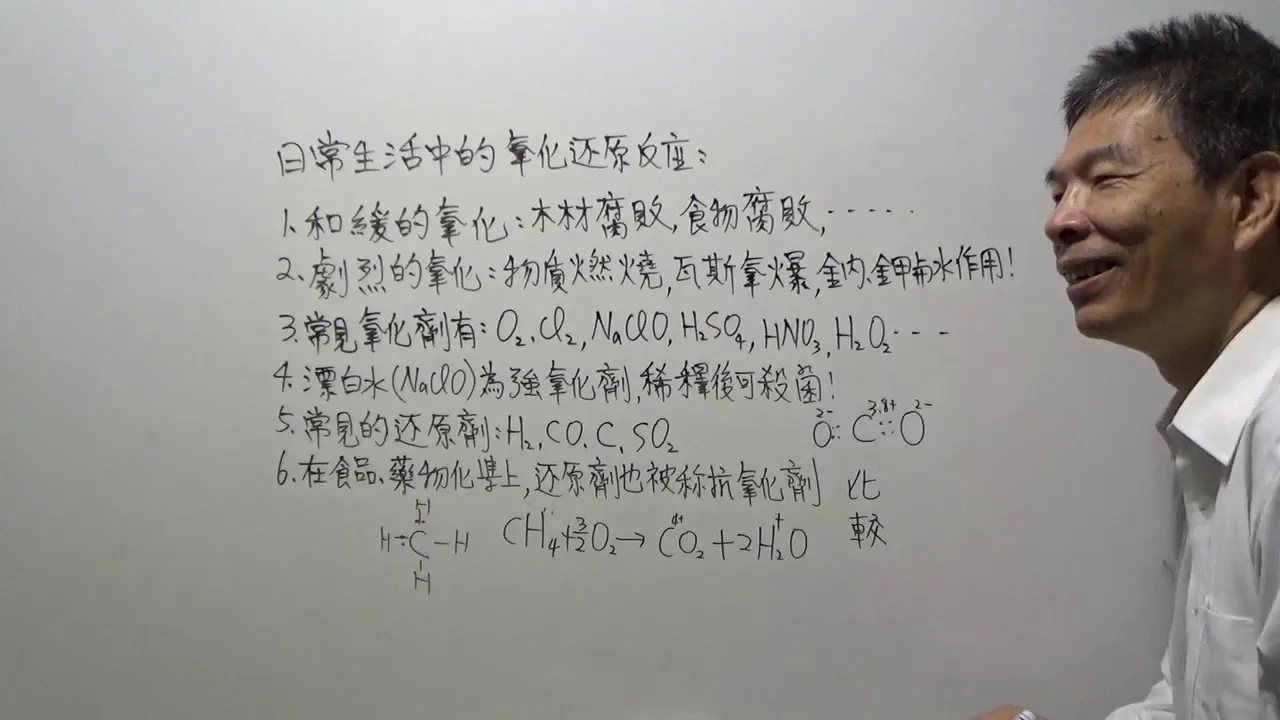 日常生活中的氧化还原反应:
1.和緩的氧化:木材腐敗,食物腐敗,·····
2.劇烈的氧化:物質燃燒,瓦斯氣爆,鈉、鉀與水作用!
3.常見氧化劑有:O₂、Cl₂,NaClO,H₂SO₄,HNO₃,H₂O₂···
4.漂白水(NaClO)為強氧化劑,稀釋後可殺菌!
5.常見的还原劑:H₂,CO、C、SO₂
O²⁻::C::O²⁻
6.在食品、藥物化學上,还原劑也被称抗氧化劑
比較
H
H÷C-H
H
CH₄+3/2O₂→C⁴⁺O₂+2H₂⁺O